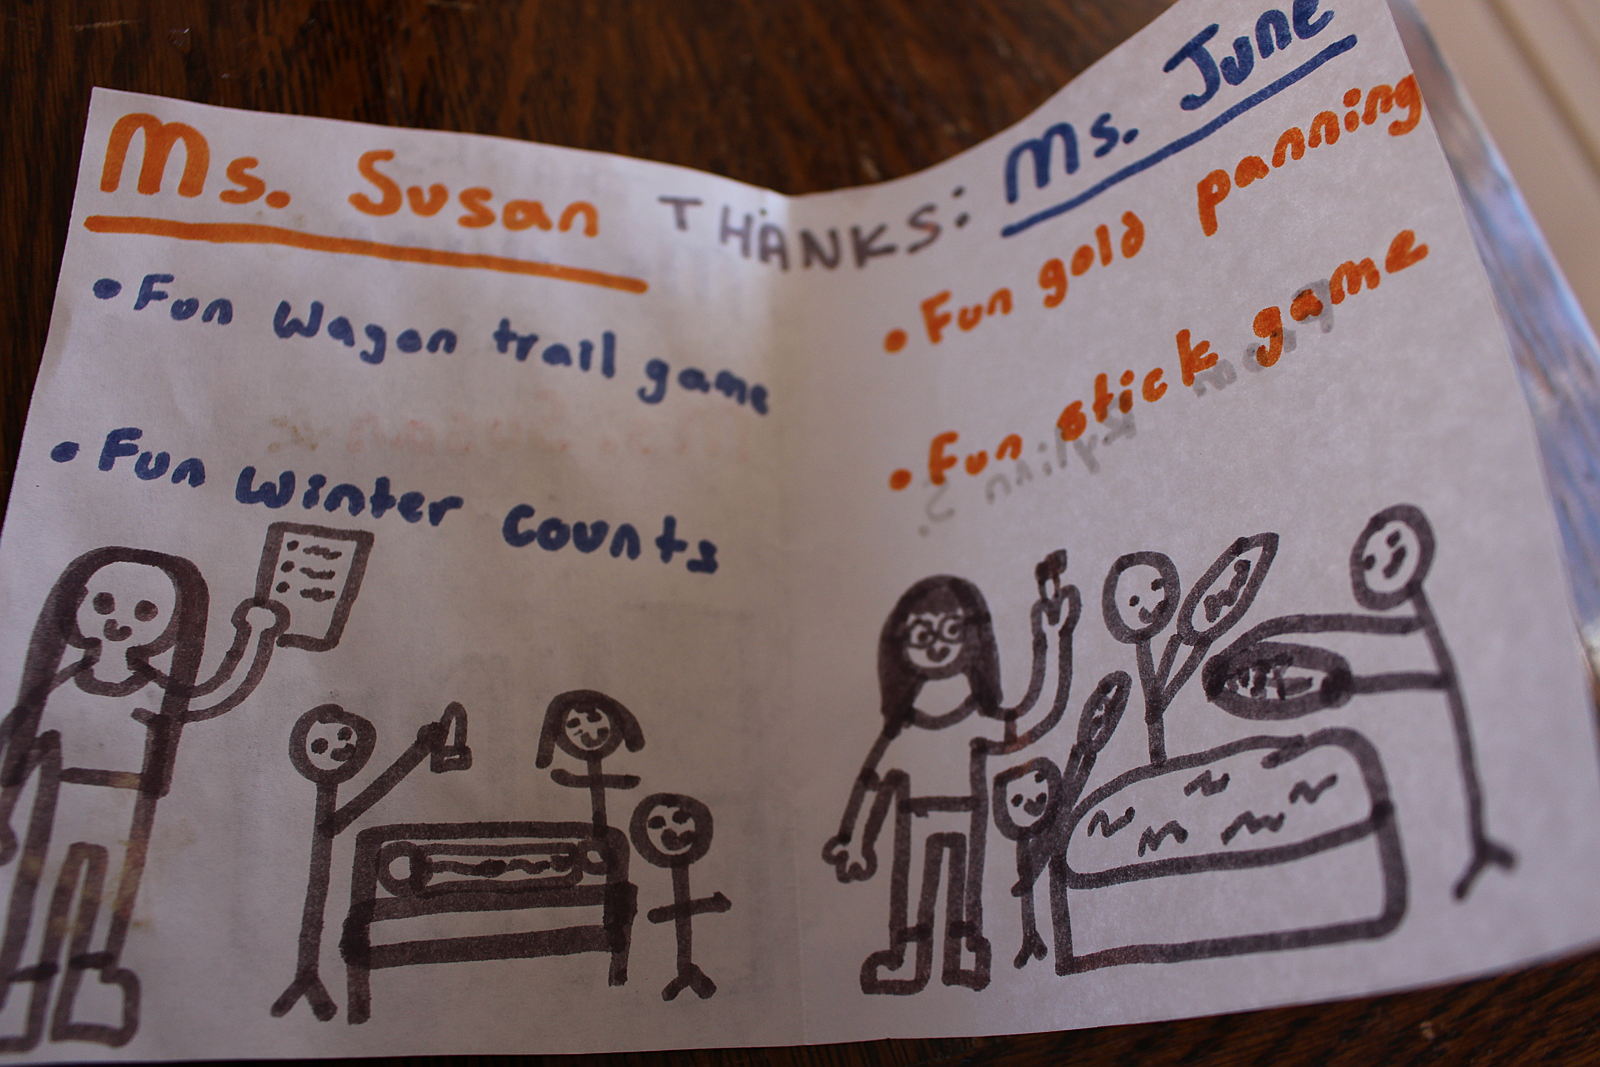 Ms. Susan
THANKS:
Ms. June
• Fun Wagon trail game
• Fun Winter Counts
• Fun gold panning
• Fun stick game